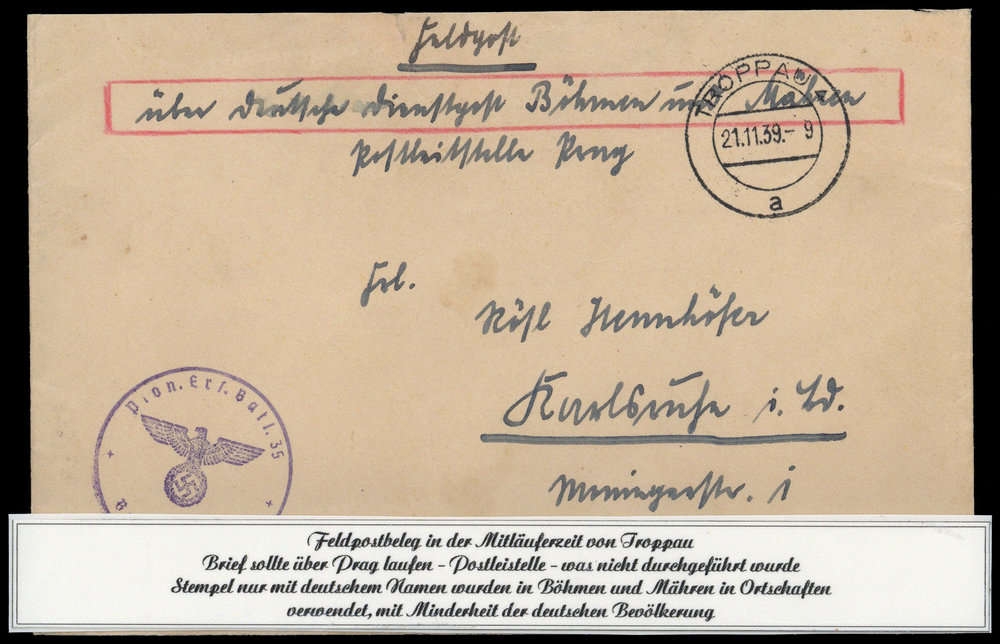 Feldpost
über deutsche Dienstpost Böhmen und Mähren
Postleitstelle Prag
TROPPAU
21.11.39.- 9
a
Frl.
Rösl Hennhöfer
Karlsruhe i. Bd.
Moningerstr. 1
Pion. Ers. Batl. 35
Feldpostbeleg in der Mitläuferzeit von Troppau
Brief sollte über Prag laufen - Postleistelle - was nicht durchgeführt wurde
Stempel nur mit deutschem Namen wurden in Böhmen und Mähren in Ortschaften
verwendet, mit Minderheit der deutschen Bevölkerung